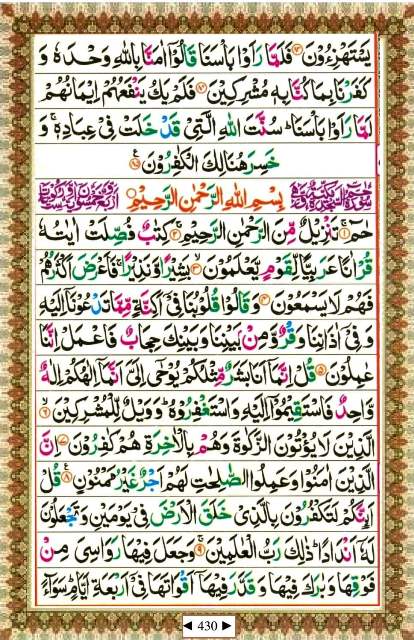 يَسْتَهْزِءُوْنَ ﴿۸۳﴾ فَلَمَّا رَاَوْا بَاْسَنَا قَالُوْۤا اٰمَنَّا بِاللّٰهِ وَحْدَهٗ وَ
كَفَرْنَا بِمَا كُنَّا بِهٖ مُشْرِكِيْنَ ﴿۸۴﴾ فَلَمْ يَكُ يَنْفَعُهُمْ اِيْمَانُهُمْ
لَمَّا رَاَوْا بَاْسَنَا ؕ سُنَّتَ اللّٰهِ الَّتِيْ قَدْ خَلَتْ فِيْ عِبَادِهٖ ۚ وَ
خَسِرَ هُنَالِكَ الْكٰفِرُوْنَ ﴿۸۵﴾
بِسْمِ اللّٰهِ الرَّحْمٰنِ الرَّحِيْمِ
حٰمٓ ﴿۱﴾ تَنْزِيْلٌ مِّنَ الرَّحْمٰنِ الرَّحِيْمِ ﴿۲﴾ كِتٰبٌ فُصِّلَتْ اٰيٰتُهٗ
قُرْاٰنًا عَرَبِيًّا لِّقَوْمٍ يَّعْلَمُوْنَ ﴿۳﴾ بَشِيْرًا وَّنَذِيْرًا ۚ فَاَعْرَضَ اَكْثَرُهُمْ
فَهُمْ لَا يَسْمَعُوْنَ ﴿۴﴾ وَقَالُوْا قُلُوْبُنَا فِيْۤ اَكِنَّةٍ مِّمَّا تَدْعُوْنَاۤ اِلَيْهِ
وَفِيْۤ اٰذَانِنَا وَقْرٌ وَّمِنْۢ بَيْنِنَا وَبَيْنِكَ حِجَابٌ فَاعْمَلْ اِنَّنَا
عٰمِلُوْنَ ﴿۵﴾ قُلْ اِنَّمَاۤ اَنَا بَشَرٌ مِّثْلُكُمْ يُوْحٰۤى اِلَيَّ اَنَّمَاۤ اِلٰهُكُمْ اِلٰهٌ
وَّاحِدٌ فَاسْتَقِيْمُوْۤا اِلَيْهِ وَاسْتَغْفِرُوْهُ ؕ وَوَيْلٌ لِّلْمُشْرِكِيْنَ ﴿۶﴾
الَّذِيْنَ لَا يُؤْتُوْنَ الزَّكٰوةَ وَهُمْ بِالْاٰخِرَةِ هُمْ كٰفِرُوْنَ ﴿۷﴾ اِنَّ
الَّذِيْنَ اٰمَنُوْا وَعَمِلُوا الصّٰلِحٰتِ لَهُمْ اَجْرٌ غَيْرُ مَمْنُوْنٍ ﴿۸﴾ قُلْ
اَئِنَّكُمْ لَتَكْفُرُوْنَ بِالَّذِيْ خَلَقَ الْاَرْضَ فِيْ يَوْمَيْنِ وَتَجْعَلُوْنَ
لَهٗۤ اَنْدَادًا ؕ ذٰلِكَ رَبُّ الْعٰلَمِيْنَ ﴿۹﴾ وَجَعَلَ فِيْهَا رَوَاسِيَ مِنْ
فَوْقِهَا وَبٰرَكَ فِيْهَا وَقَدَّرَ فِيْهَاۤ اَقْوَاتَهَا فِيْۤ اَرْبَعَةِ اَيَّامٍ ؕ سَوَآءً
◄ 430 ►